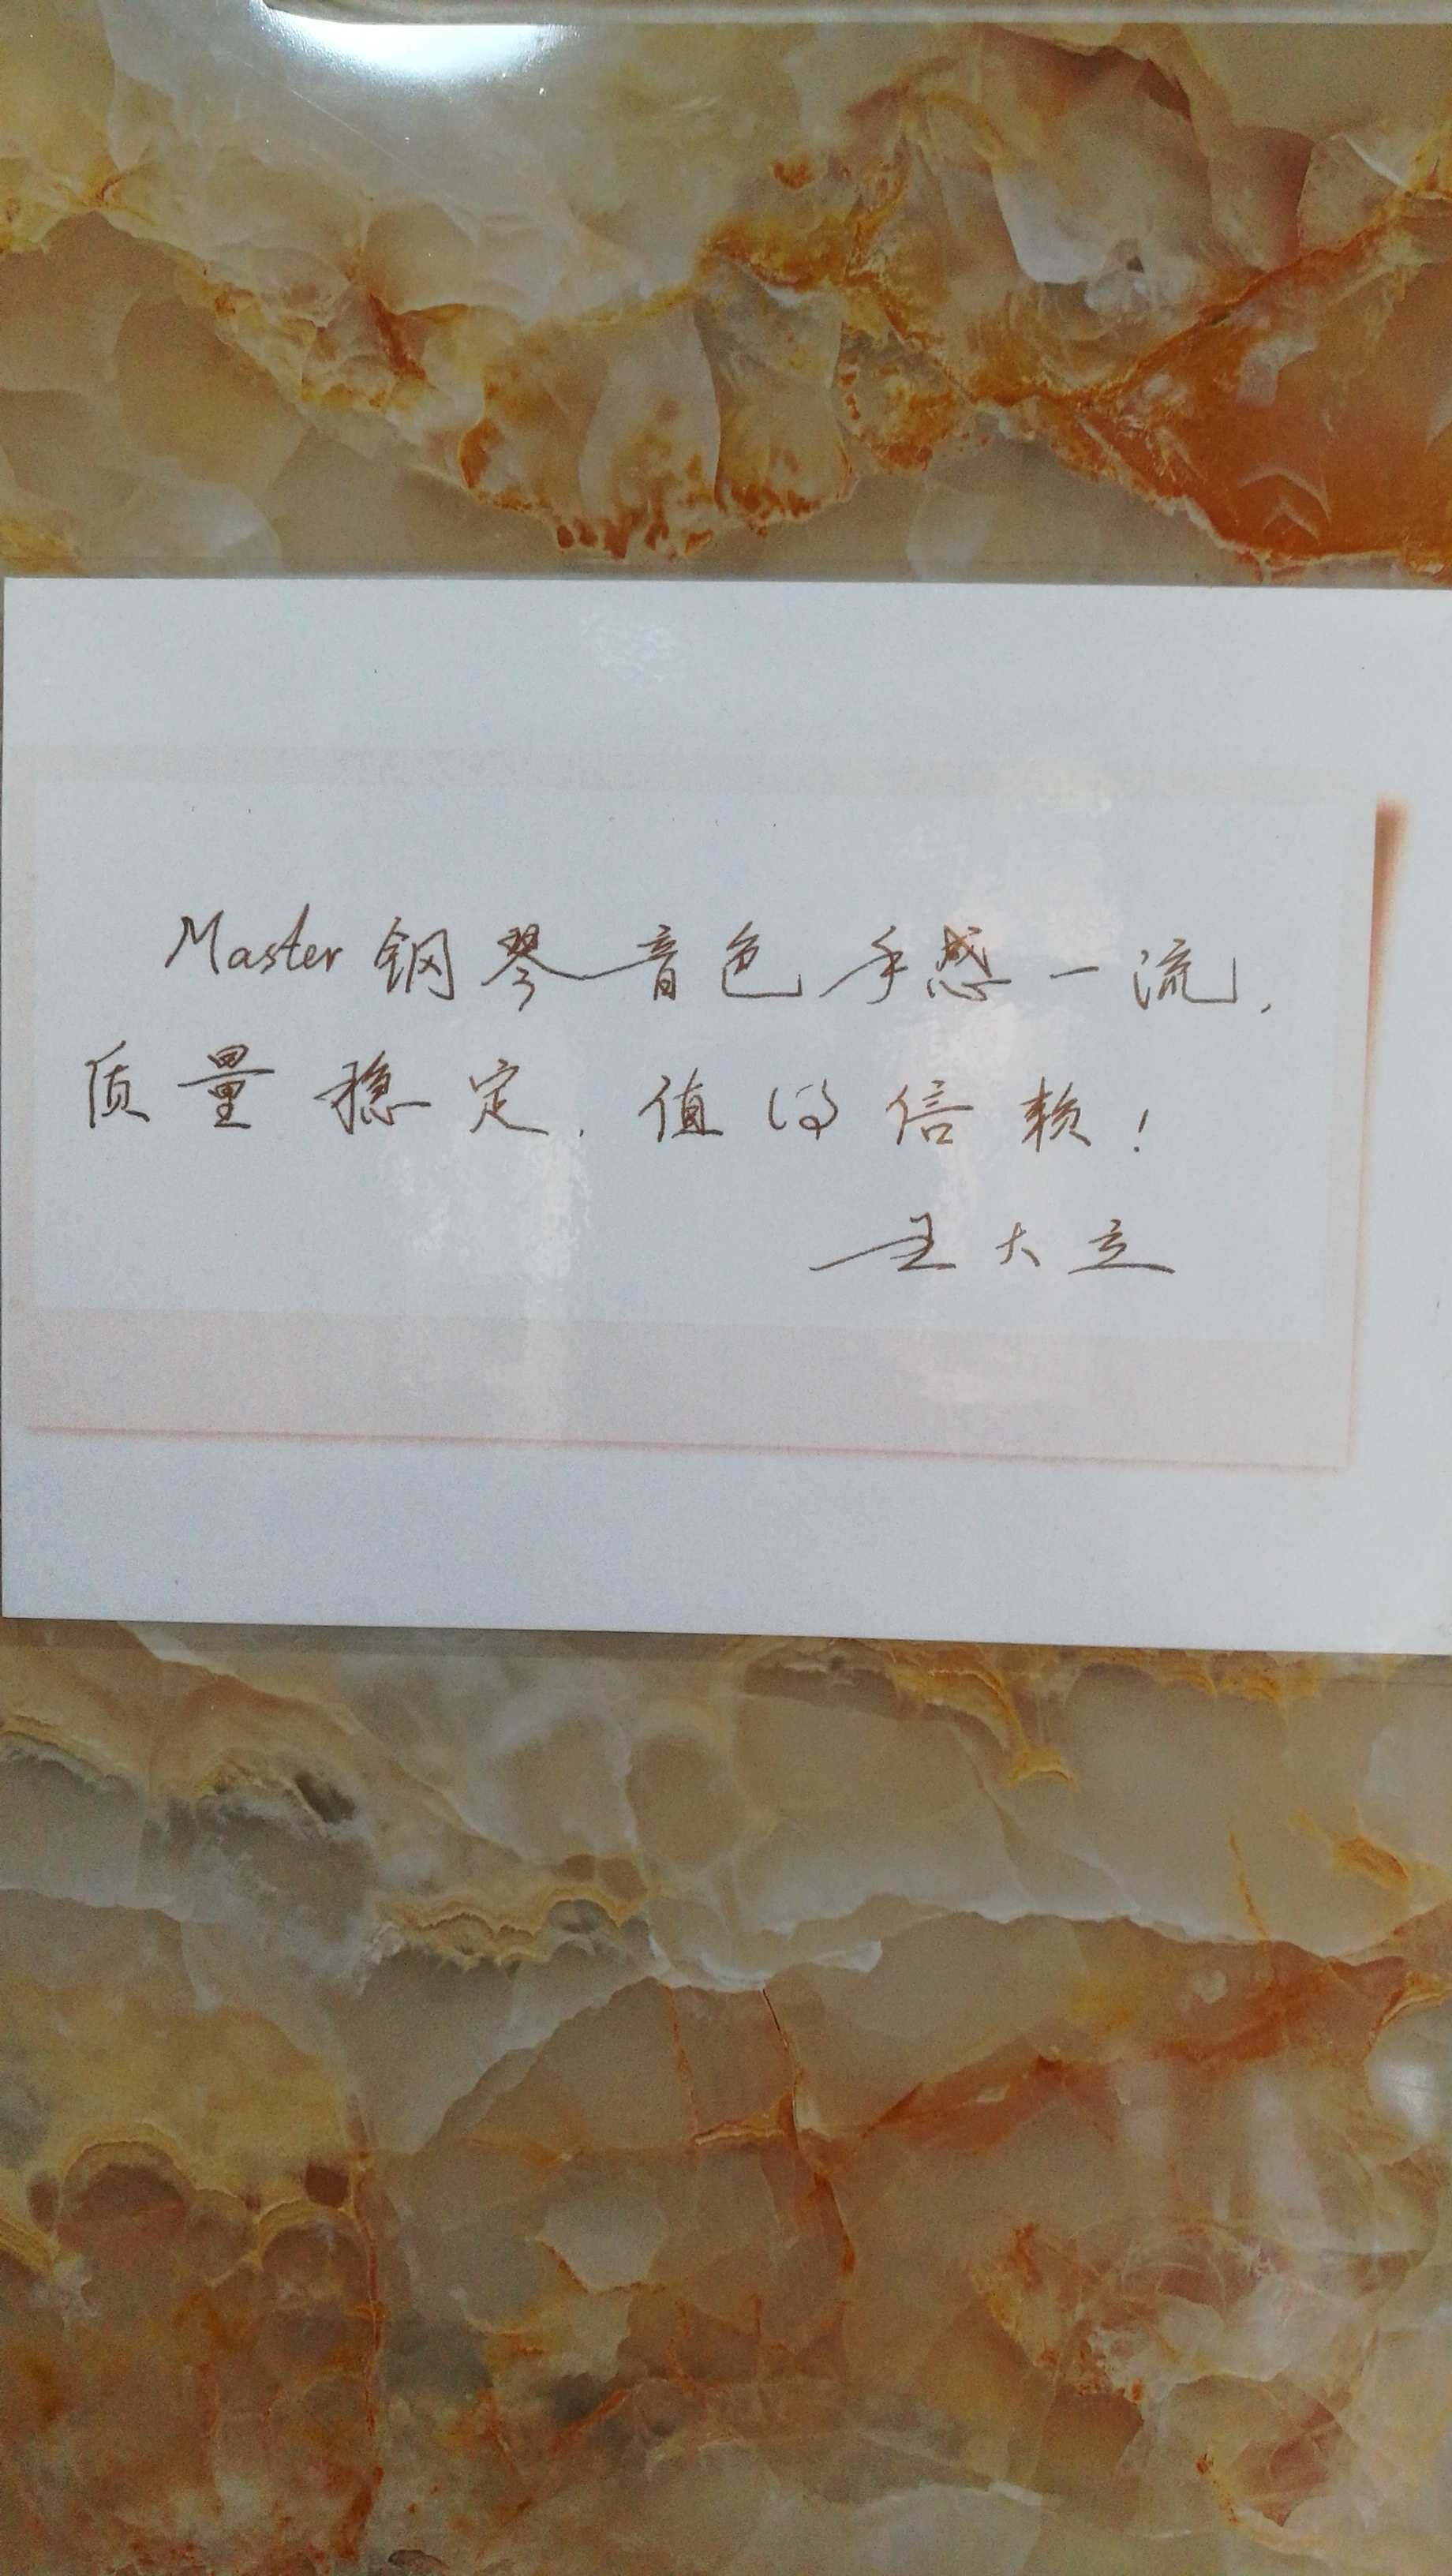 Master钢琴音色手感一流,
质量稳定.值得信赖!
王大立